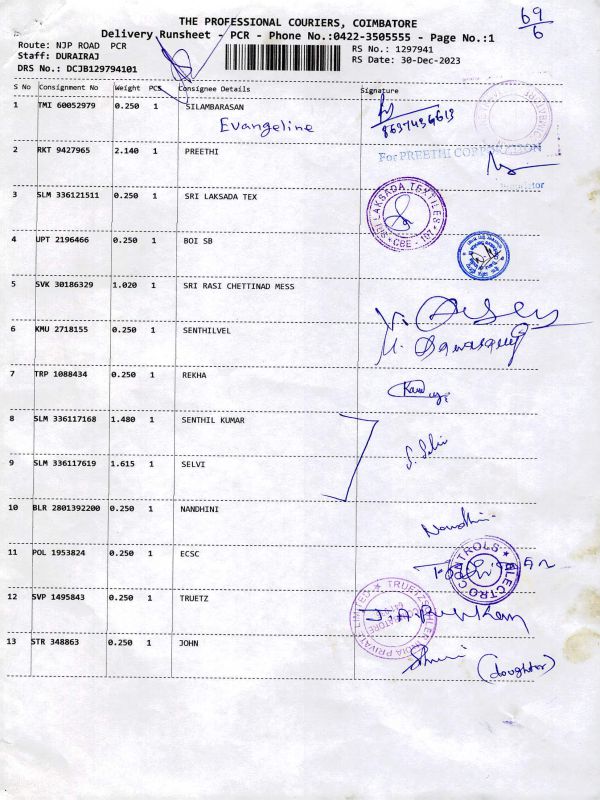 THE PROFESSIONAL COURIERS, COIMBATORE
69
6
Delivery Runsheet - PCR - Phone No.:0422-3505555 - Page No.:1
Route: NJP ROAD PCR
RS No.: 1297941
Staff: DURAIRAJ
RS Date: 30-Dec-2023
DRS No.: DCJB129794101
S No Consignment No Weight PCS Consignee Details Signature
1 TMI 60052979 0.250 1 SILAMBARASAN
Evangeline
2 RKT 9427965 2.140 1 PREETHI
For PREETHI CORPORATION
3 SLM 336121511 0.250 1 SRI LAKSADA TEX
SRI LAKSADA TEXTILES
CBE - 107
4 UPT 2196466 0.250 1 BOI SB
5 SVK 30186329 1.020 1 SRI RASI CHETTINAD MESS
6 KMU 2718155 0.250 1 SENTHILVEL
7 TRP 1088434 0.250 1 REKHA
8 SLM 336117168 1.480 1 SENTHIL KUMAR
9 SLM 336117619 1.615 1 SELVI
S. Selvi
10 BLR 2801392200 0.250 1 NANDHINI
Nandhini
11 POL 1953824 0.250 1 ECSC
ELECTRO CONTROLS
12 SVP 1495843 0.250 1 TRUETZ
TRUETZSCHLER INDIA PRIVATE LIMITED
13 STR 348863 0.250 1 JOHN
(doughter)